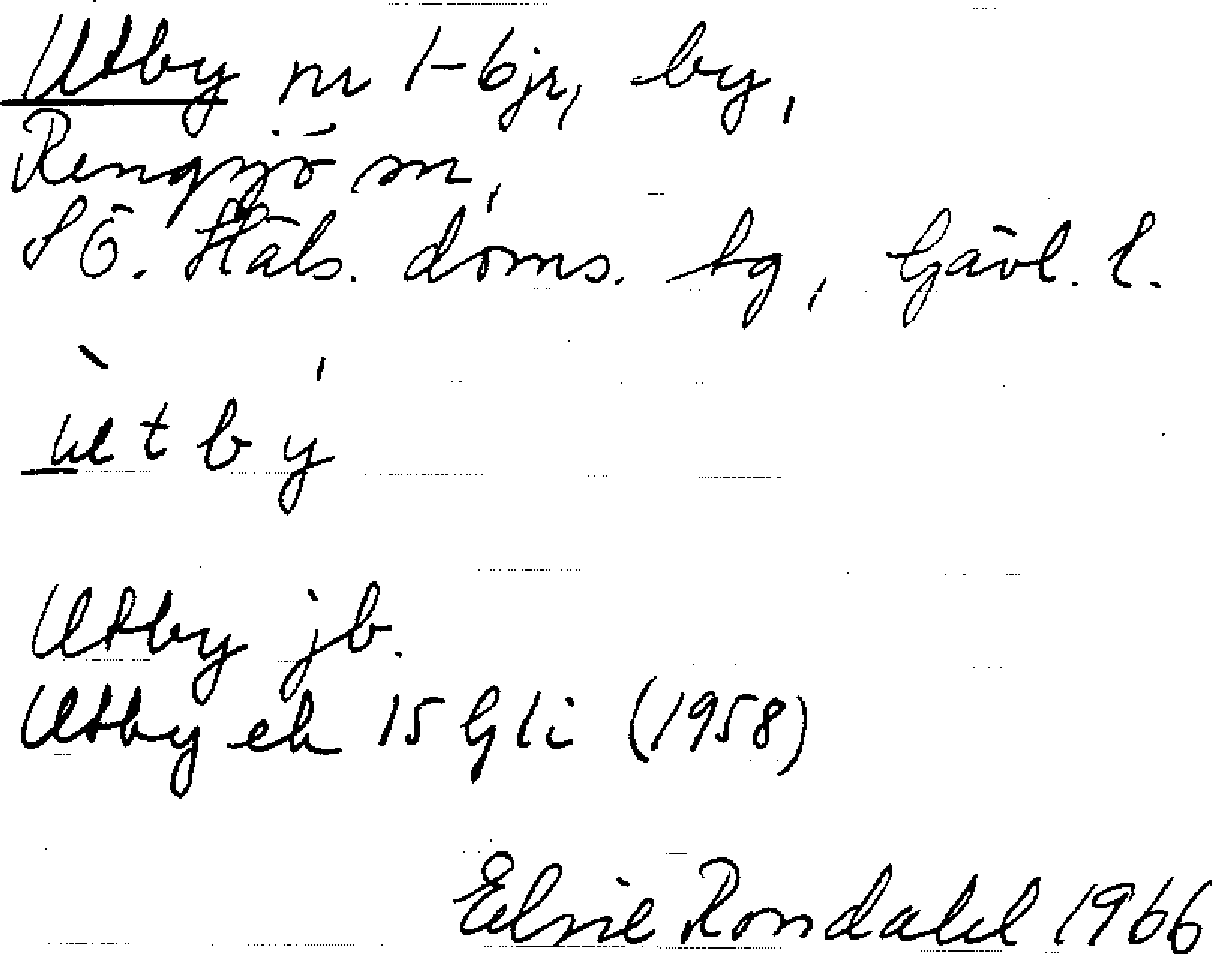 Utby nr 1-6 jr, by,
Rengsjö sn,
SÖ. Häls. doms. tg, Gävl. l.
ùtbý
Utby jb.
Utby ek 15 G 1 i (1958)
Elsie Rondahl 1966